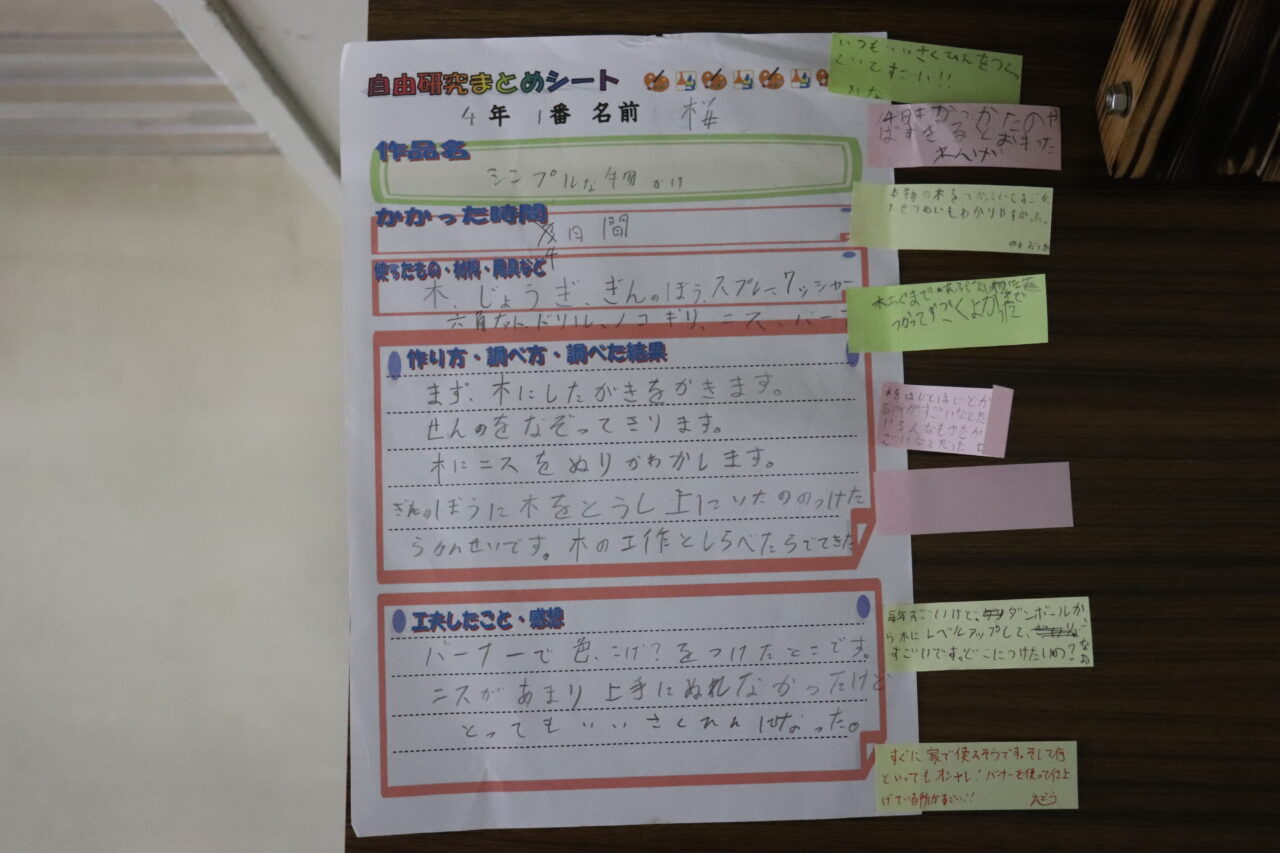 自由研究まとめシート
4年 1番 名前 桜
作品名
シンプルな物かけ
かかった時間
4日間
使ったもの・材料・用具など
木、じょうぎ、ぎんのぼう、スプレーワッシャー
六角ナット、ドリル、ノコギリ、ニス、バーナー
作り方・調べ方・調べた結果
まず、木にしたがきをかきます。
せんのをなぞってきります。
木にニスをぬりかわかします。
ぎんのぼうに木をとうし上にいたののっけた
らかんせいです。木の工作としらべたらでてきた
工夫したこと・感想
バーナーで色、こげ?をつけたとこです。
ニスがあまり上手にぬれなかったけど
とってもいいさくひんになった。
いつもいいさくひんをつく
っていてすごい!!
4日もかかったのや
ばすぎるとおもった
れんげ
本物の木をつかっていてすごかっ
たせつめいもわかりやすかった。
つかっててすごくよかった
毎年すごいけど、ダンボールか
ら木にレベルアップして、
すごいです。どこにつけたいの?
すぐに家で使えそうです。そして何
といってもオシャレ!バーナーを使って仕上
げている所がすごい!!